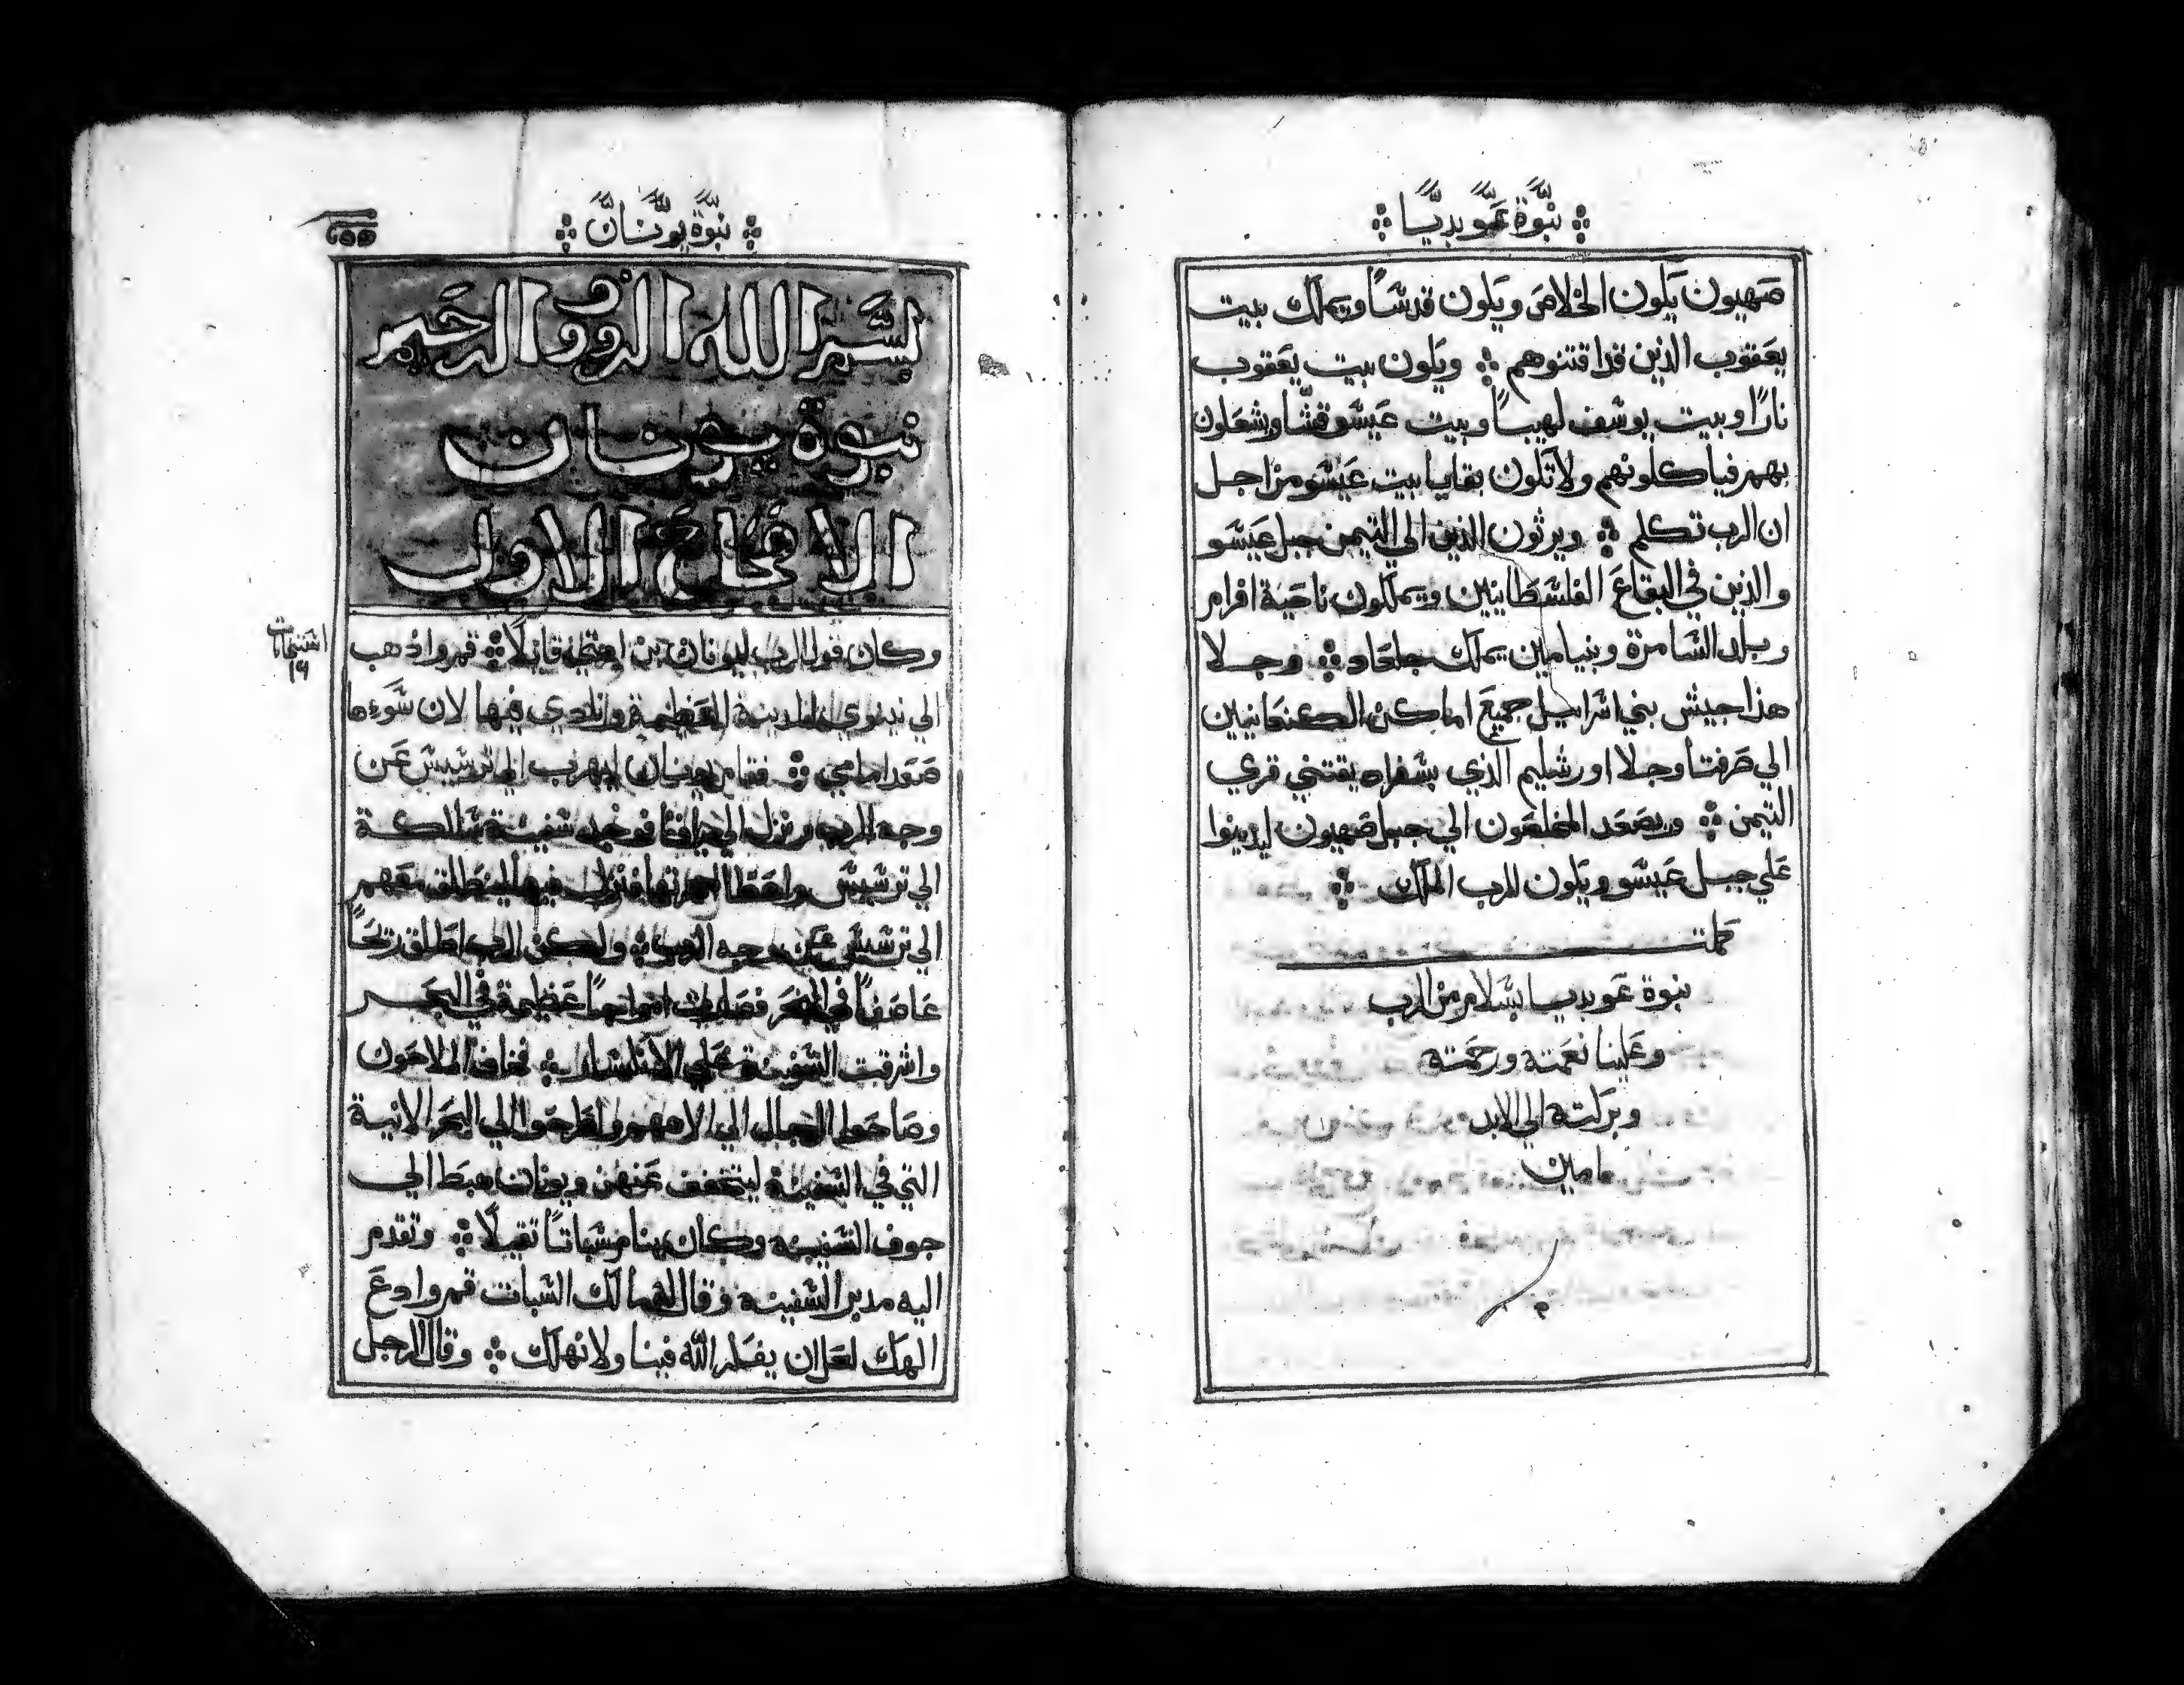 نبوة عوبديا
صهيون يكون الخلاص ويكون قدسًا ويملك بيت
يعقوب الذين قد اقتنوهم ؞ ويكون بيت يعقوب
نارًا وبيت يوسف لهيبًا وبيت عيسو قشًا ويشعلون
بهم فياكلونهم ولا تكون بقايا بيت عيسو من اجل
ان الرب تكلم ؞ ويرثون الذين الي التيمن جبل عيسو
والذين في البقاع الفلسطانيين ويملكون ناحية افرام
وبلد السامرة وبنيامين يملك جلعاد ؞ وجلا
هذا جيش بني اسراييل جميع اماكن الكنعانيين
الي صرفتا وجلا اورشليم الذي بسفراد يقتني قري
التيمن ؞ ويصعد المخلصون الي جبل صهيون ليدينوا
علي جبل عيسو ويكون للرب الملك ؞
كملت
نبوة عوبديا بسلام من الرب
وعلينا نعمته ورحمته
وبركته الي الابد
امين
نبوة يونان
بسم الله الرووف الرحيم
نبوة يونان
الاصحاح الاول
وكان قول الرب ليونان بن امتي قايلًا ؞ قم واذهب
الي نينوي المدينة العظيمة ونادي فيها لان سوءها
صعد امامي ؞ فقام يونان ليهرب الي ترسيس عن
وجه الرب ونزل الي يافا فوجد سفينة سالكة
الي ترسيس واعطا اجرتها فنزل فيها لينطلق معهم
الي ترسيس عن وجه الرب ؞ ولكن الرب اطلق ريحًا
عاصفًا في البحر فصارت امواجًا عظيمة في البحر
واشرفت السفينة علي الانكسار ؞ فخاف الملاحون
وصاحوا الرجال الي الاههم واطرحوا الي البحر الانية
التي في السفينة ليتخفف عنهن ويونان هبط الي
جوف السفينه وكان ينام سباتًا ثقيلًا ؞ وتقدم
اليه مدبر السفينه وقال له ما لك السبات قم وادع
الهك لعل ان يفكر الله فينا ولا نهلك ؞ وقال الرجل